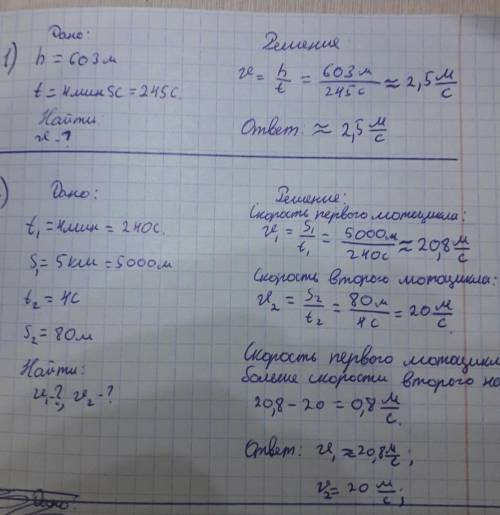 1)
Дано:
h = 603 м
t = 4 мин 5с = 245с.
Найти
v - ?
Решение
v = h/t = 603 м/245 с ≈ 2,5 м/с
Ответ: ≈ 2,5 м/с
)
Дано:
t₁ = 4 мин = 240с.
S₁ = 5 км = 5000м
t₂ = 4с
S₂ = 80 м
Найти:
v₁ - ?, v₂ - ?
Решение:
Скорость первого мотоцикла:
v₁ = S₁/t₁ = 5000м/240с ≈ 20,8 м/с
Скорость второго мотоцикла:
v₂ = S₂/t₂ = 80 м/4с = 20 м/с.
Скорость первого мотоцикл
больше скорости второго на
20,8 - 20 = 0,8 м/с.
Ответ: v₁ ≈ 20,8 м/с;
v₂ = 20 м/с;
Дано: